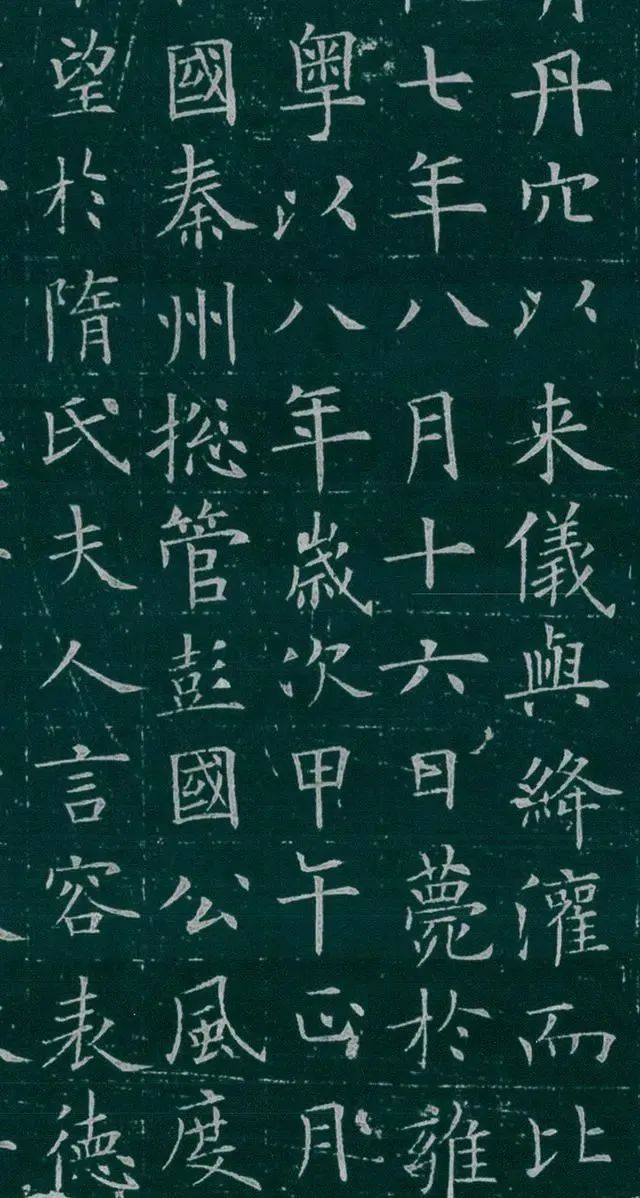 丹穴以来儀與絳灌而比
七年八月十六日薨於雒
粵以八年歲次甲午正月
國秦州捴管彭國公風度
望於隋氏夫人言容表德